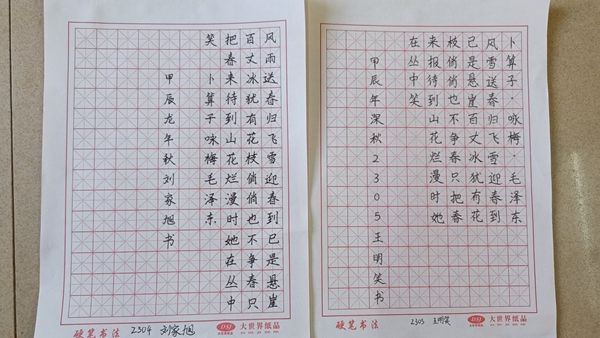 风雨送春归飞雪迎春到已是悬崖
百丈冰犹有花枝俏俏也不争春只
把春来待到山花烂漫时她在丛中
笑
卜算子咏梅毛泽东
甲辰龙年秋刘家旭书
硬笔书法 2304 刘家旭 DSJ 大世界纸品
卜算子·咏梅·毛泽东
风雪送春归飞雪迎春到
已是悬崖百丈冰犹有花
枝俏俏也不争春只把春
来报待到山花烂漫时她
在丛中笑
甲辰年深秋2305王明笑书
硬笔书法 2305 王明笑 DSJ 大世界纸品